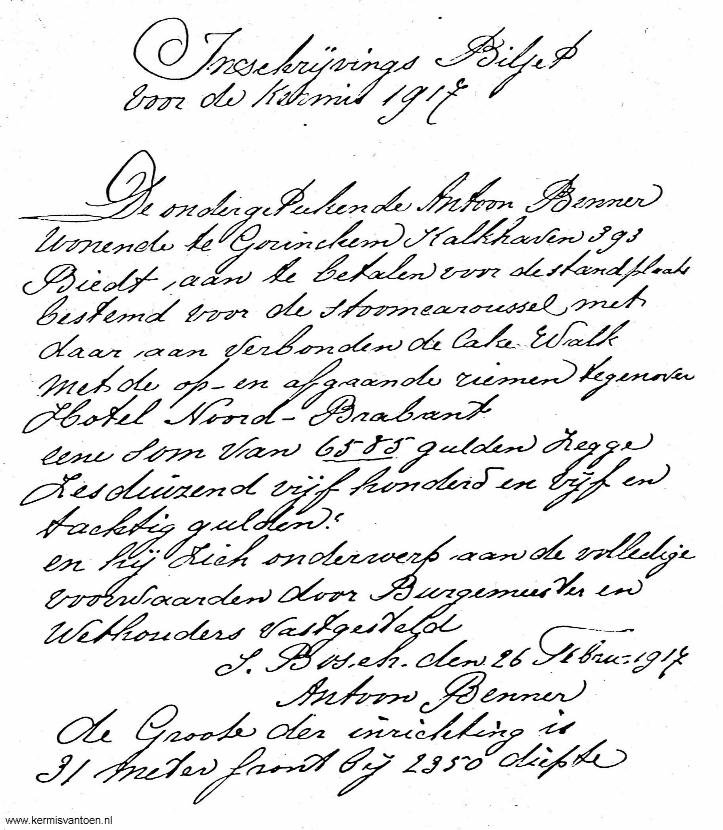 Inschrijvings Biljet
voor de Kermis 1917
De ondergetekende Antoon Benner
wonende te Gorinchem Kalkhaven 393
Biedt aan te betalen voor de standplaats
bestemd voor de stoomcaroussel met
daar aan verbonden de Cake Walk
met de op- en afgaande riemen tegenover
Hotel Noord-Brabant
eene Som van 6585 gulden Zegge
Zesduizend vijf honderd en vijf en
tachtig gulden.
en hij Zich onderwerp aan de volledige
voorwaarden door Burgemeester en
Wethouders vastgesteld
S. Bosch. den 26 Febru- 1917
Antoon Benner
de Groote der inrichting is
31 meter front bij 2350 diepte
www.kermisvantoen.nl